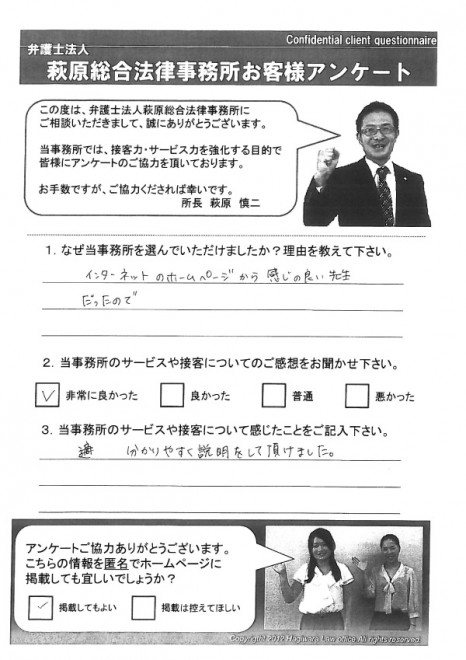 Confidential client questionnaire
弁護士法人
萩原総合法律事務所お客様アンケート
この度は、弁護士法人萩原総合法律事務所に
ご相談いただきまして、誠にありがとうございます。
当事務所では、接客力・サービス力を強化する目的で
皆様にアンケートのご協力を頂いております。
お手数ですが、ご協力くだされば幸いです。
所長 萩原 慎二
1. なぜ当事務所を選んでいただけましたか？理由を教えて下さい。
インターネットのホームページから 感じの良い先生
だったので
2. 当事務所のサービスや接客についてのご感想をお聞かせ下さい。
非常に良かった 良かった 普通 悪かった
3. 当事務所のサービスや接客について感じたことをご記入下さい。
分かりやすく説明をして頂けました。
アンケートご協力ありがとうございます。
こちらの情報を匿名でホームページに
掲載しても宜しいでしょうか？
掲載してもよい 掲載は控えてほしい
Copyright 2012 Hagiwara Law office All rights reserved